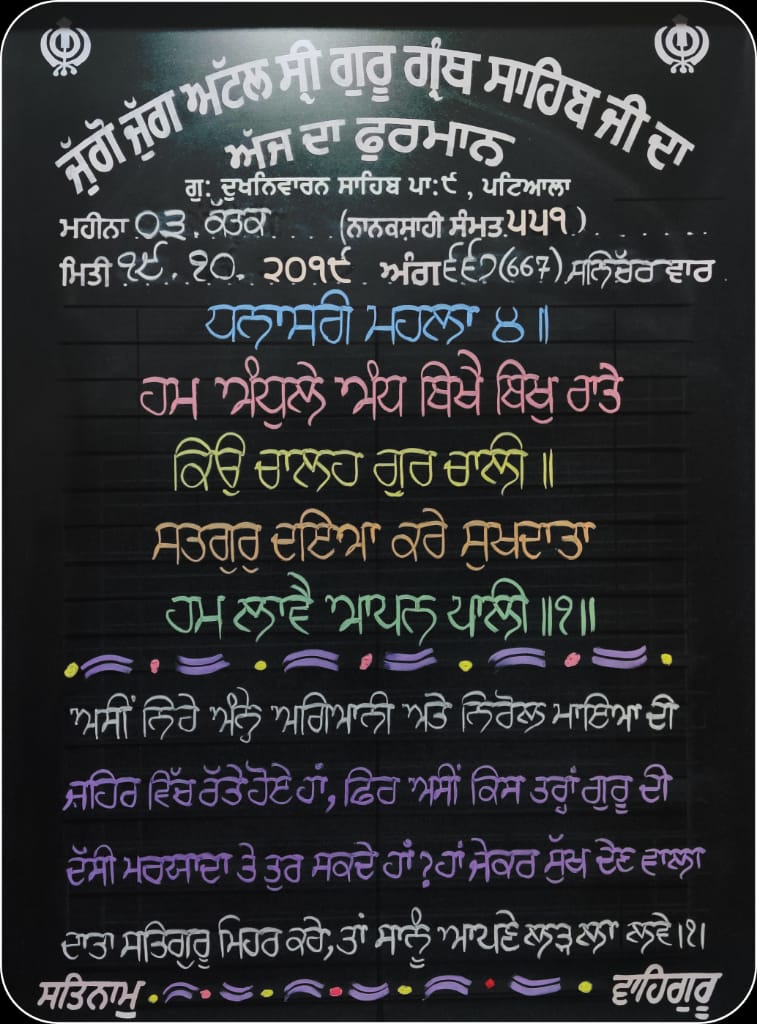 ਜੁੱਗੋ ਜੁੱਗ ਅਟੱਲ ਸ੍ਰੀ ਗੁਰੂ ਗ੍ਰੰਥ ਸਾਹਿਬ ਜੀ ਦਾ
ਅੱਜ ਦਾ ਫੁਰਮਾਨ
ਗੁ: ਦੁਖਨਿਵਾਰਨ ਸਾਹਿਬ ਪਾ:੯ , ਪਟਿਆਲਾ
ਮਹੀਨਾ ੦੩. ਕੱਤਕ (ਨਾਨਕਸ਼ਾਹੀ ਸੰਮਤ ੫੫੧)
ਮਿਤੀ ੧੯. ੧੦. ੨੦੧੯ ਅੰਗ ੬੬੭(667) ਸਨਿੱਚਰ ਵਾਰ
ਧਨਾਸਰੀ ਮਹਲਾ ੪॥
ਹਮ ਅੰਧੁਲੇ ਅੰਧ ਬਿਖੈ ਬਿਖੁ ਰਾਤੇ
ਕਿਉ ਚਾਲਹ ਗੁਰ ਚਾਲੀ ॥
ਸਤਗੁਰੁ ਦਇਆ ਕਰੇ ਸੁਖਦਾਤਾ
ਹਮ ਲਾਵੈ ਆਪਨ ਪਾਲੀ ॥੧॥
ਅਸੀਂ ਨਿਰੇ ਅੰਨ੍ਹੇ ਅਗਿਆਨੀ ਅਤੇ ਨਿਰੋਲ ਮਾਇਆ ਦੀ
ਜ਼ਹਿਰ ਵਿੱਚ ਰੱਤੇ ਹੋਏ ਹਾਂ, ਫਿਰ ਅਸੀਂ ਕਿਸ ਤਰ੍ਹਾਂ ਗੁਰੂ ਦੀ
ਦੱਸੀ ਮਰਯਾਦਾ ਤੇ ਤੁਰ ਸਕਦੇ ਹਾਂ ? ਹਾਂ ਜੇਕਰ ਸੁੱਖ ਦੇਣ ਵਾਲਾ
ਦਾਤਾ ਸਤਿਗੁਰੂ ਮਿਹਰ ਕਰੇ, ਤਾਂ ਸਾਨੂੰ ਆਪਣੇ ਲੜ ਲਾ ਲਵੇ।੧।
ਸਤਿਨਾਮੁ ਵਾਹਿਗੁਰੂ